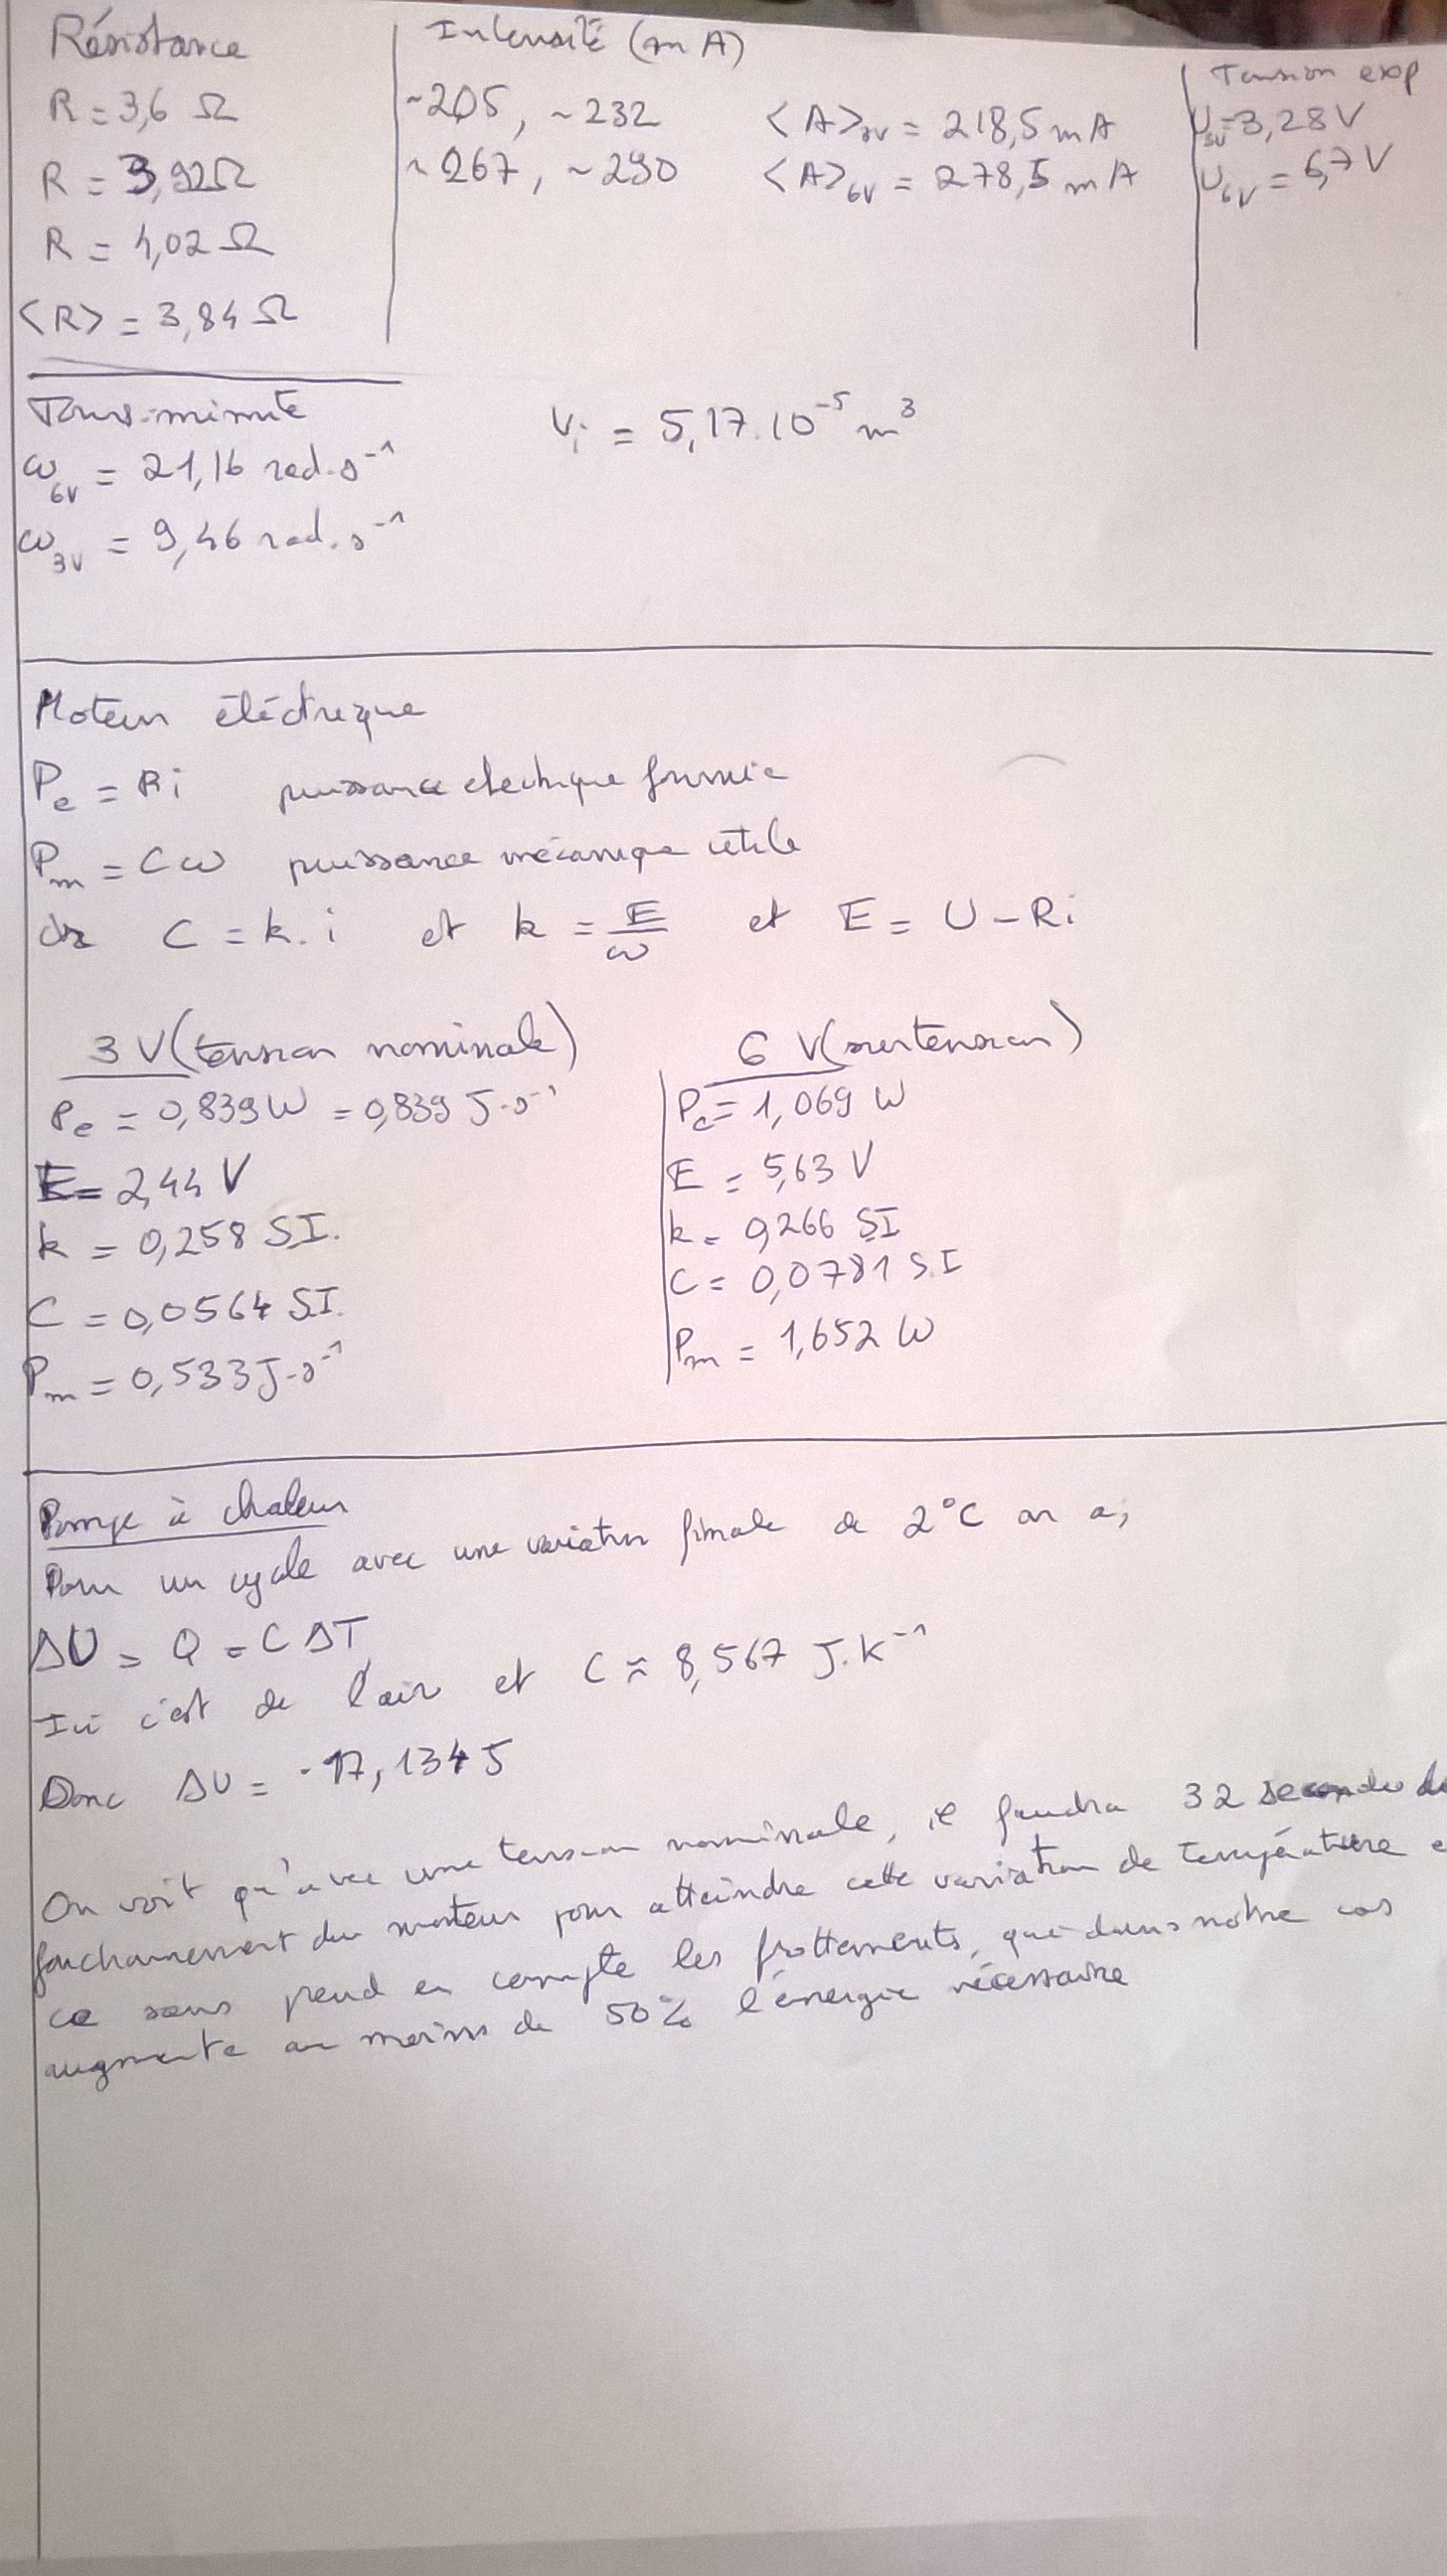 Résistance
R = 3,6 Ω
R = 3,92Ω
R = 4,02 Ω
<R> = 3,84 Ω
Intensité (mA)
~205, ~232 <A>3V = 218,5 mA
~267, ~290 <A>6V = 278,5 mA
Tension exp
U3V = 3,28 V
U6V = 6,7 V
Tours-minute
ω6V = 21,16 rad.s⁻¹
ω3V = 9,46 rad.s⁻¹
Vi = 5,17.10⁻⁵ m³
Moteur éléctrique
Pe = Ri puissance electrique fournie
Pm = Cω puissance mécanique utile
or C = k.i et k = E/ω et E = U - Ri
3 V (tension nominale)
Pe = 0,839 W = 0,839 J.s⁻¹
E = 2,44 V
k = 0,258 S.I.
C = 0,0564 S.I.
Pm = 0,533 J.s⁻¹
6 V (surtension)
Pe = 1,069 W
E = 5,63 V
k = 0,266 SI
C = 0,0781 S.I
Pm = 1,652 W
Pompe à chaleur
Pour un cycle avec une variation finale de 2°C on a,
ΔU = Q = C ΔT
Ici c'est de l'air et C ≈ 8,567 J.K⁻¹
Donc ΔU = -17,134 J
On voit qu'avec une tension nominale, il faudra 32 secondes de
fonctionnement du moteur pour atteindre cette variation de température e
ce sans prend en compte les frottements, qui dans notre cas
augmente au moins de 50% l'énergie nécessaire